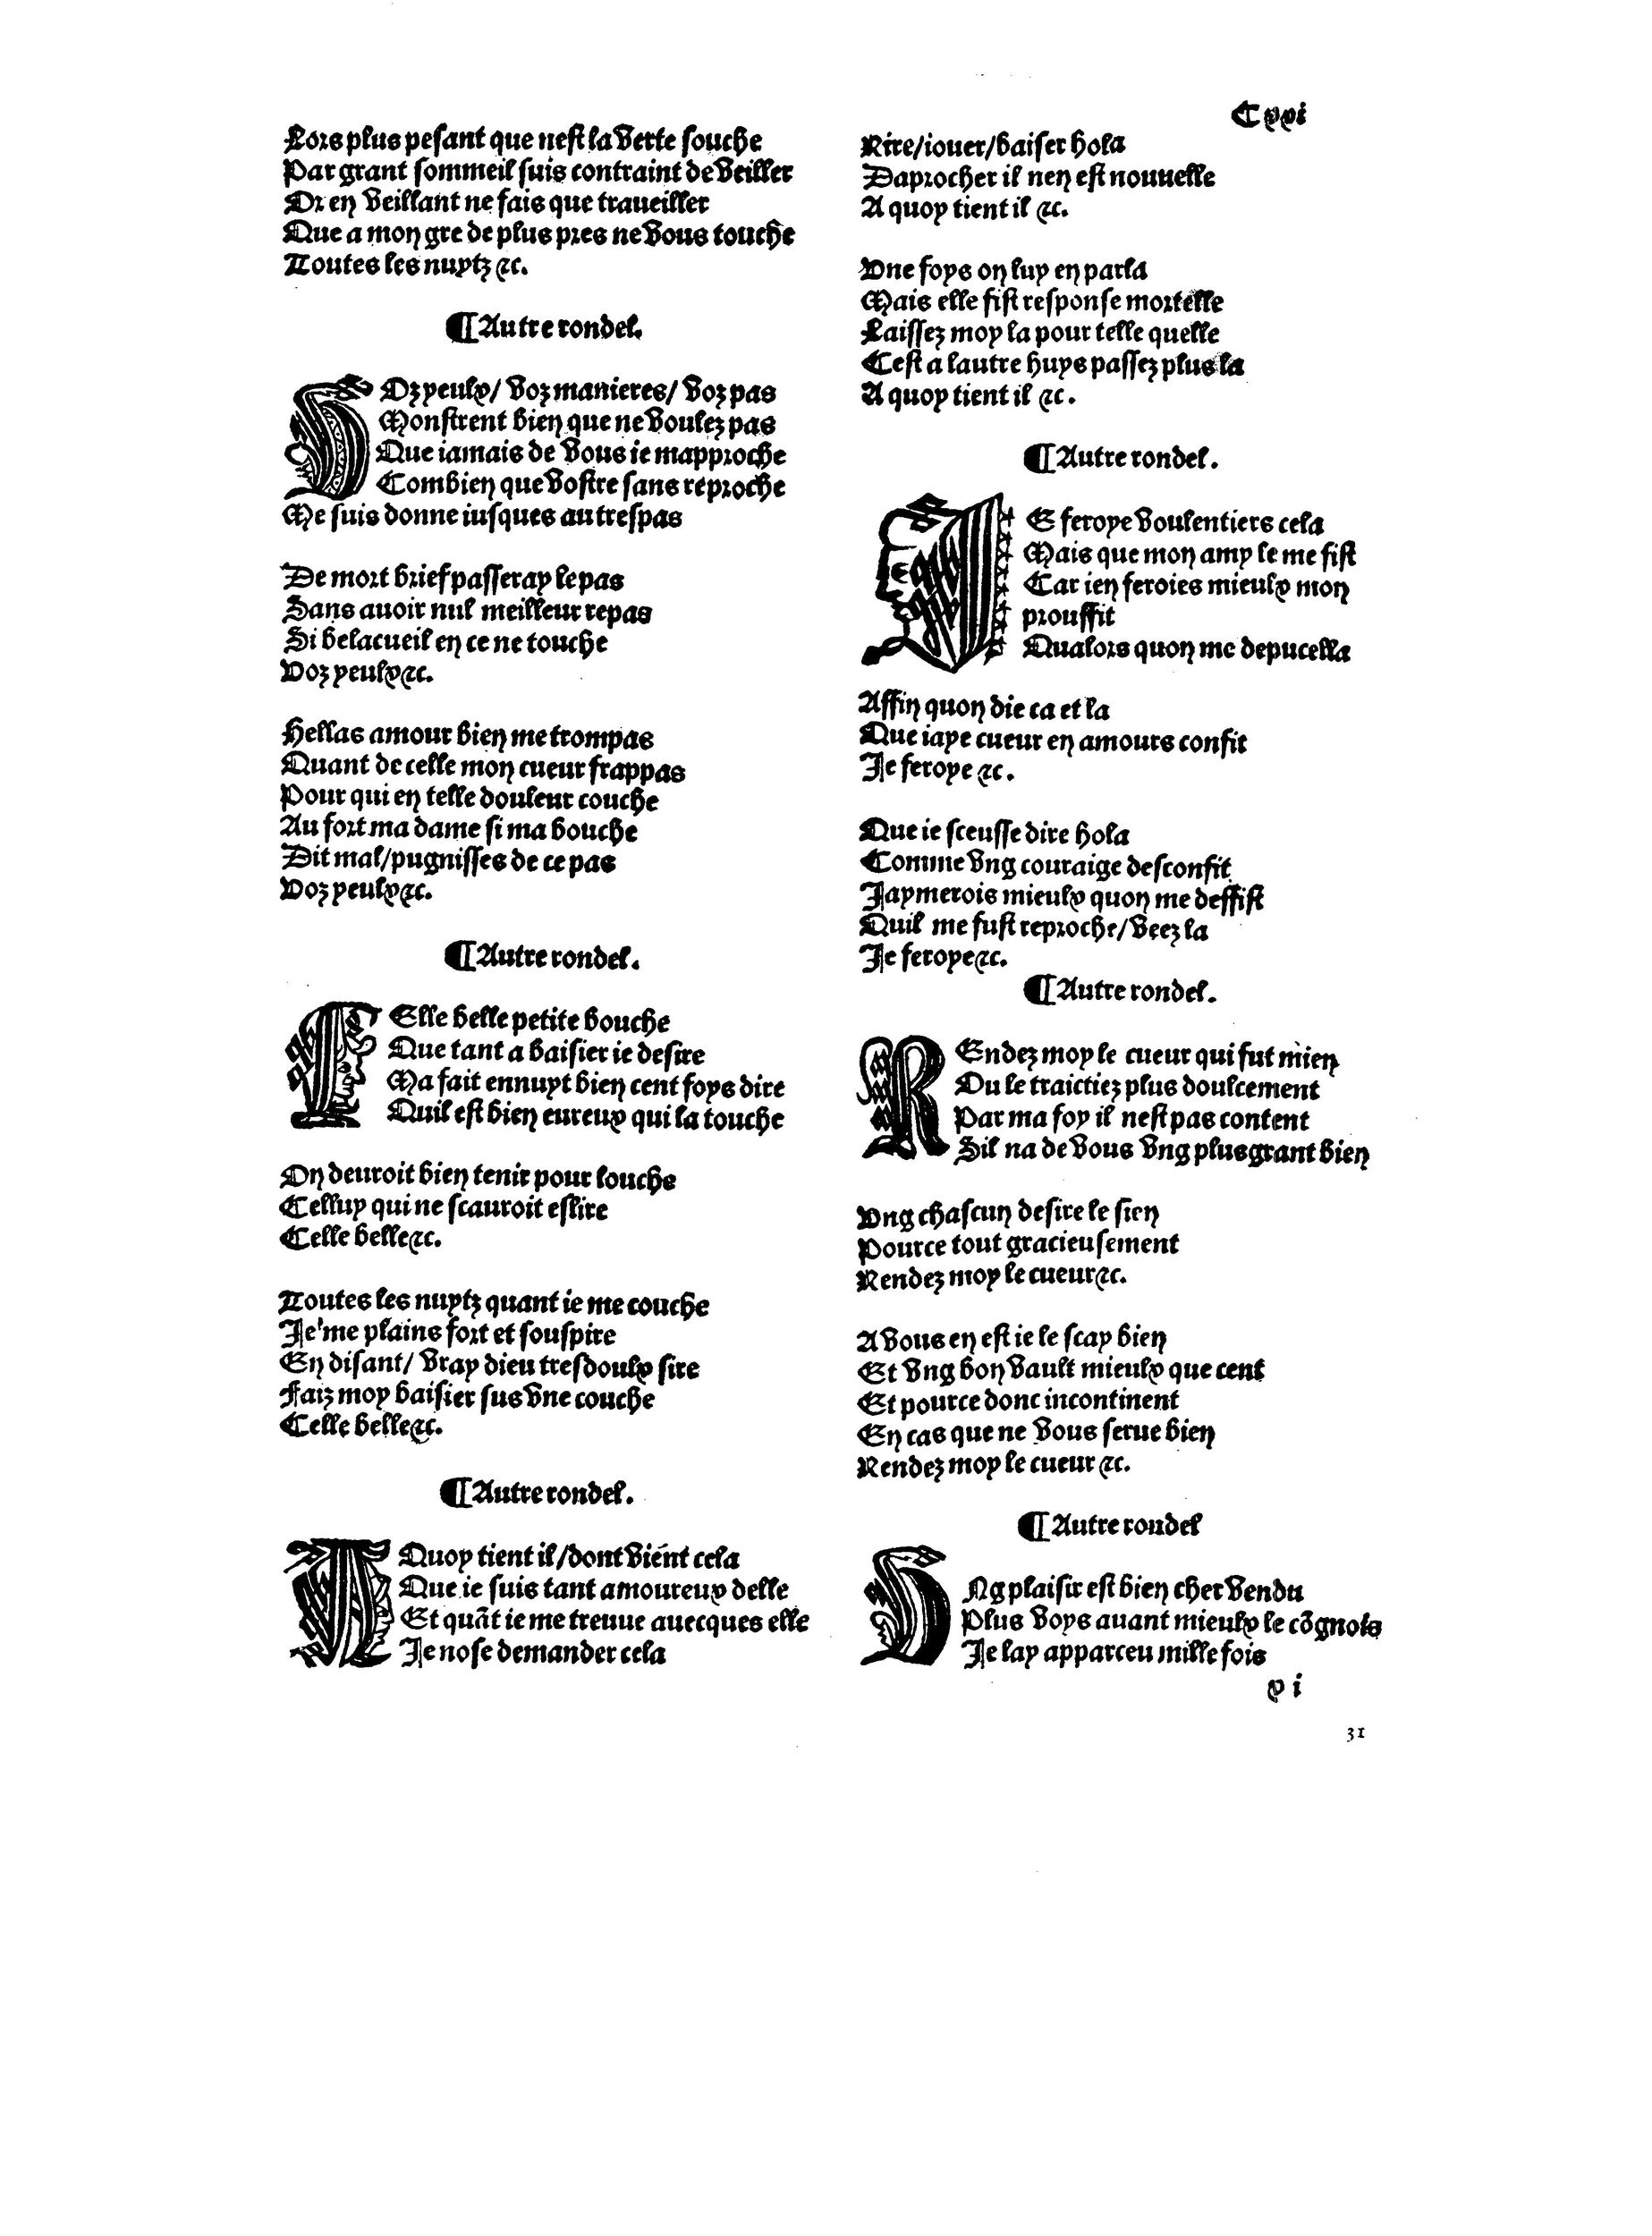 C xxi
Lors plus pesant que nest la verte souche
Par grant sommeil suis contraint de veiller
Or en veillant ne fais que traueiller
Que a mon gre de plus pres ne vous touche
Toutes les nuytz &c.
¶ Autre rondel.
VOz yeulx/ voz manieres/ voz pas
Monstrent bien que ne voulez pas
Que iamais de vous ie mapproche
Combien que vostre sans reproche
Me suis donne iusques au trespas
De mort brief passeray le pas
Sans auoir nul meilleur repas
Si belacueil en ce ne touche
Voz yeulx &c.
Hellas amour bien me trompas
Quant de celle mon cueur frappas
Pour qui en telle douleur couche
Au fort ma dame si ma bouche
Dit mal/pugnisses de ce pas
Voz yeulx &c.
¶ Autre rondel.
CElle belle petite bouche
Que tant a baisier ie desire
Ma fait ennuyt bien cent foys dire
Quil est bien eureux qui la touche
On deuroit bien tenir pour louche
Celluy qui ne scauroit eslire
Celle belle &c.
Toutes les nuytz quant ie me couche
Je me plains fort et souspire
En disant/ vray dieu tresdoulx sire
Faiz moy baisier sus vne couche
Celle belle &c.
¶ Autre rondel.
A Quoy tient il/dont vient cela
Que ie suis tant amoureux delle
Et quāt ie me treuue auecques elle
Je nose demander cela
Rire/iouer/baiser hola
Daprocher il nen est nouuelle
A quoy tient il &c.
Vne foys on luy en parla
Mais elle fist response mortelle
Laissez moy la pour telle quelle
Cest a lautre huys passez plus la
A quoy tient il &c.
¶ Autre rondel.
IE feroye voulentiers cela
Mais que mon amy le me fist
Car ien feroies mieulx mon
prouffit
Qualors quon me depucella
Affin quon die ca et la
Que iaye cueur en amours confit
Je feroye &c.
Que ie sceusse dire hola
Comme vng couraige desconfit
Jaymerois mieulx quon me deffist
Quil me fust reproche/veez la
Je feroye &c.
¶ Autre rondel.
REndez moy le cueur qui fut mien
Ou le traictiez plus doulcement
Par ma foy il nest pas content
Sil na de vous vng plus grant bien
Vng chascun desire le sien
Pource tout gracieusement
Rendez moy le cueur &c.
A vous en est ie le scay bien
Et vng bon vault mieulx que cent
Et pource donc incontinent
En cas que ne vous serue bien
Rendez moy le cueur &c.
¶ Autre rondel
VNg plaisir est bien cher vendu
Plus voys auant mieulx le cōgnois
Je lay apparceu mille fois
x i
31